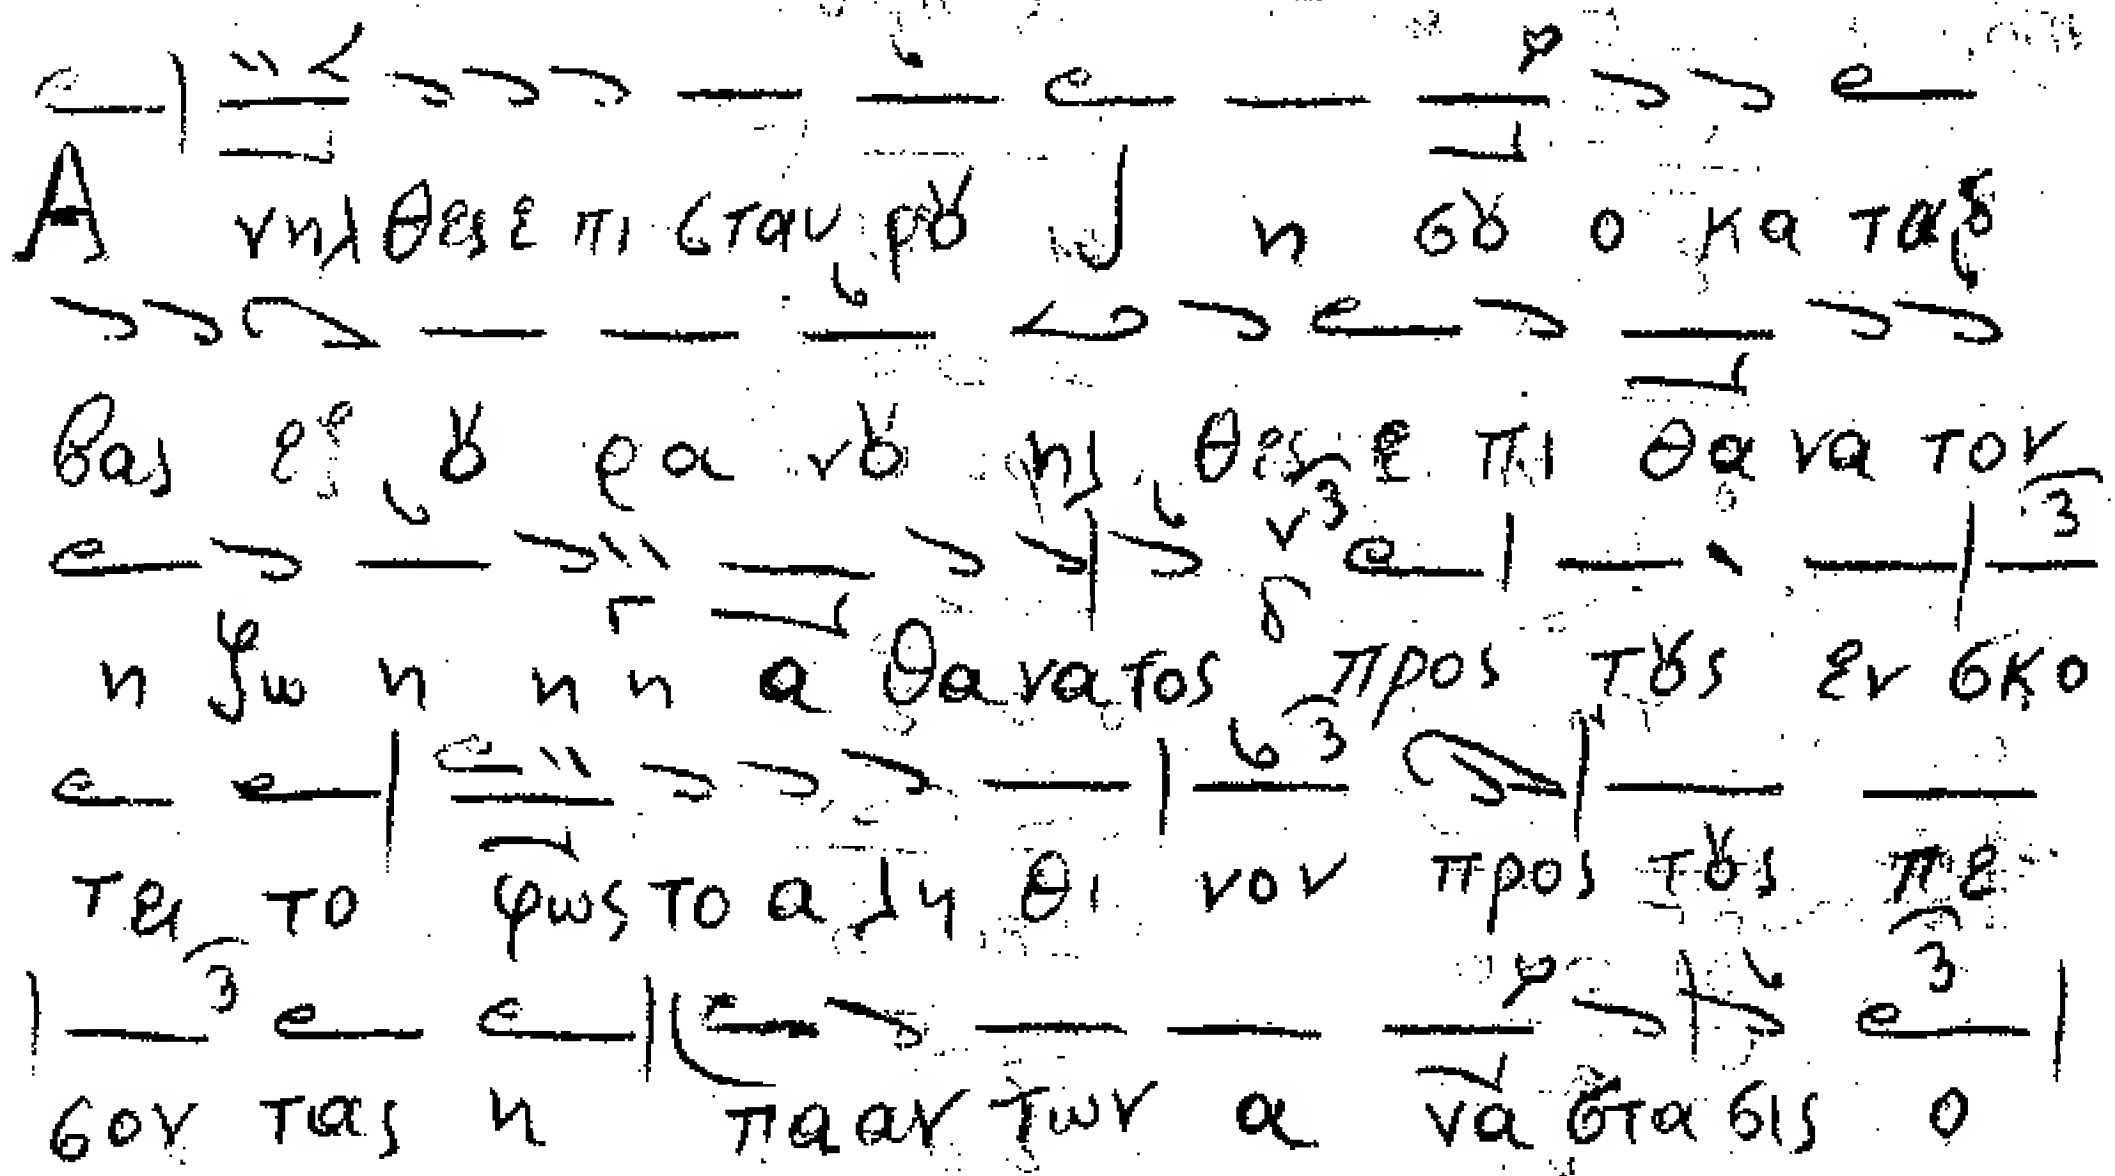 Ανηλθες επι σταυρȣ Ιη η σȣ ο καταβ
βας εξ ȣ ρα νȣ ηλ θες ε πι θα να τον
η ζω η η η α θανατος προς τȣς εν σκο
τει το φως το α λη θι νον προς τȣς πε
σον τας η πααν των α να στα σις ο